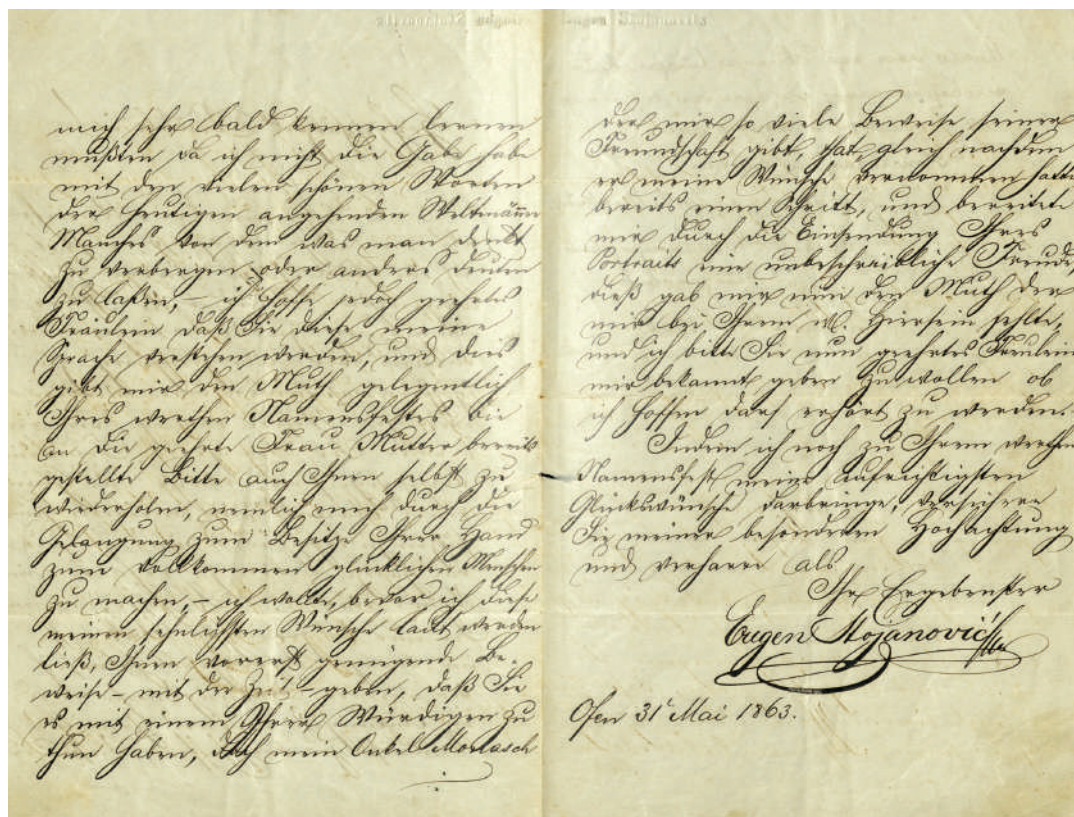 mich sehr bald kennen lernen
mußten da ich nicht die Gabe habe
mit den vielen schönen Worten
der heutigen angehenden Weltmänner
Manches von dem was man denkt
zu verbergen oder anders deuten
zu laßen, – ich hoffe jedoch geehrtes
Fräulein daß Sie diese meine
Sprache verstehen werden, und dies
gibt mir den Muth gelegentlich
Ihres werthen Namensfestes die
an die geehrte Frau Mutter bereits
gestellte Bitte auch Ihnen selbst zu
wiederholen, nemlich mich durch die
Gelangung zum Besitze Ihrer Hand
zum vollkommen glücklichen Menschen
zu machen, – ich wollte, bevor ich diese
meinen sehnlichsten Wünsche laut werden
ließ, Ihnen vorerst genügende Be-
weise – mit der Zeit – geben, daß Sie
es mit einem Ihrer Würdigen zu
thun haben, doch mein Onkel
der mir so viele Beweise seiner
Freundschaft gibt, that gleich nachdem
er meine Wünsche vernommen hatte
bereits einen Schritt, und bereitete
mir durch die Einsendung Ihres
Portraits eine unbeschreibliche Freude,
dieß gab mir nun den Muth der
mir bei Ihrem Hiersein fehlte,
und ich bitte Sie nun geehrtes Fräulein
mir bekannt geben zu wollen ob
ich hoffen darf erhört zu werden.
Indem ich noch zu Ihrem werthen
Namensfest meine aufrichtigsten
Glückswünsche darbringe, versichere
Sie meiner besonderen Hochachtung
und verharre als
Ihr Ergebenster
Eugen Stojanović
Ofen 31t Mai 1863.